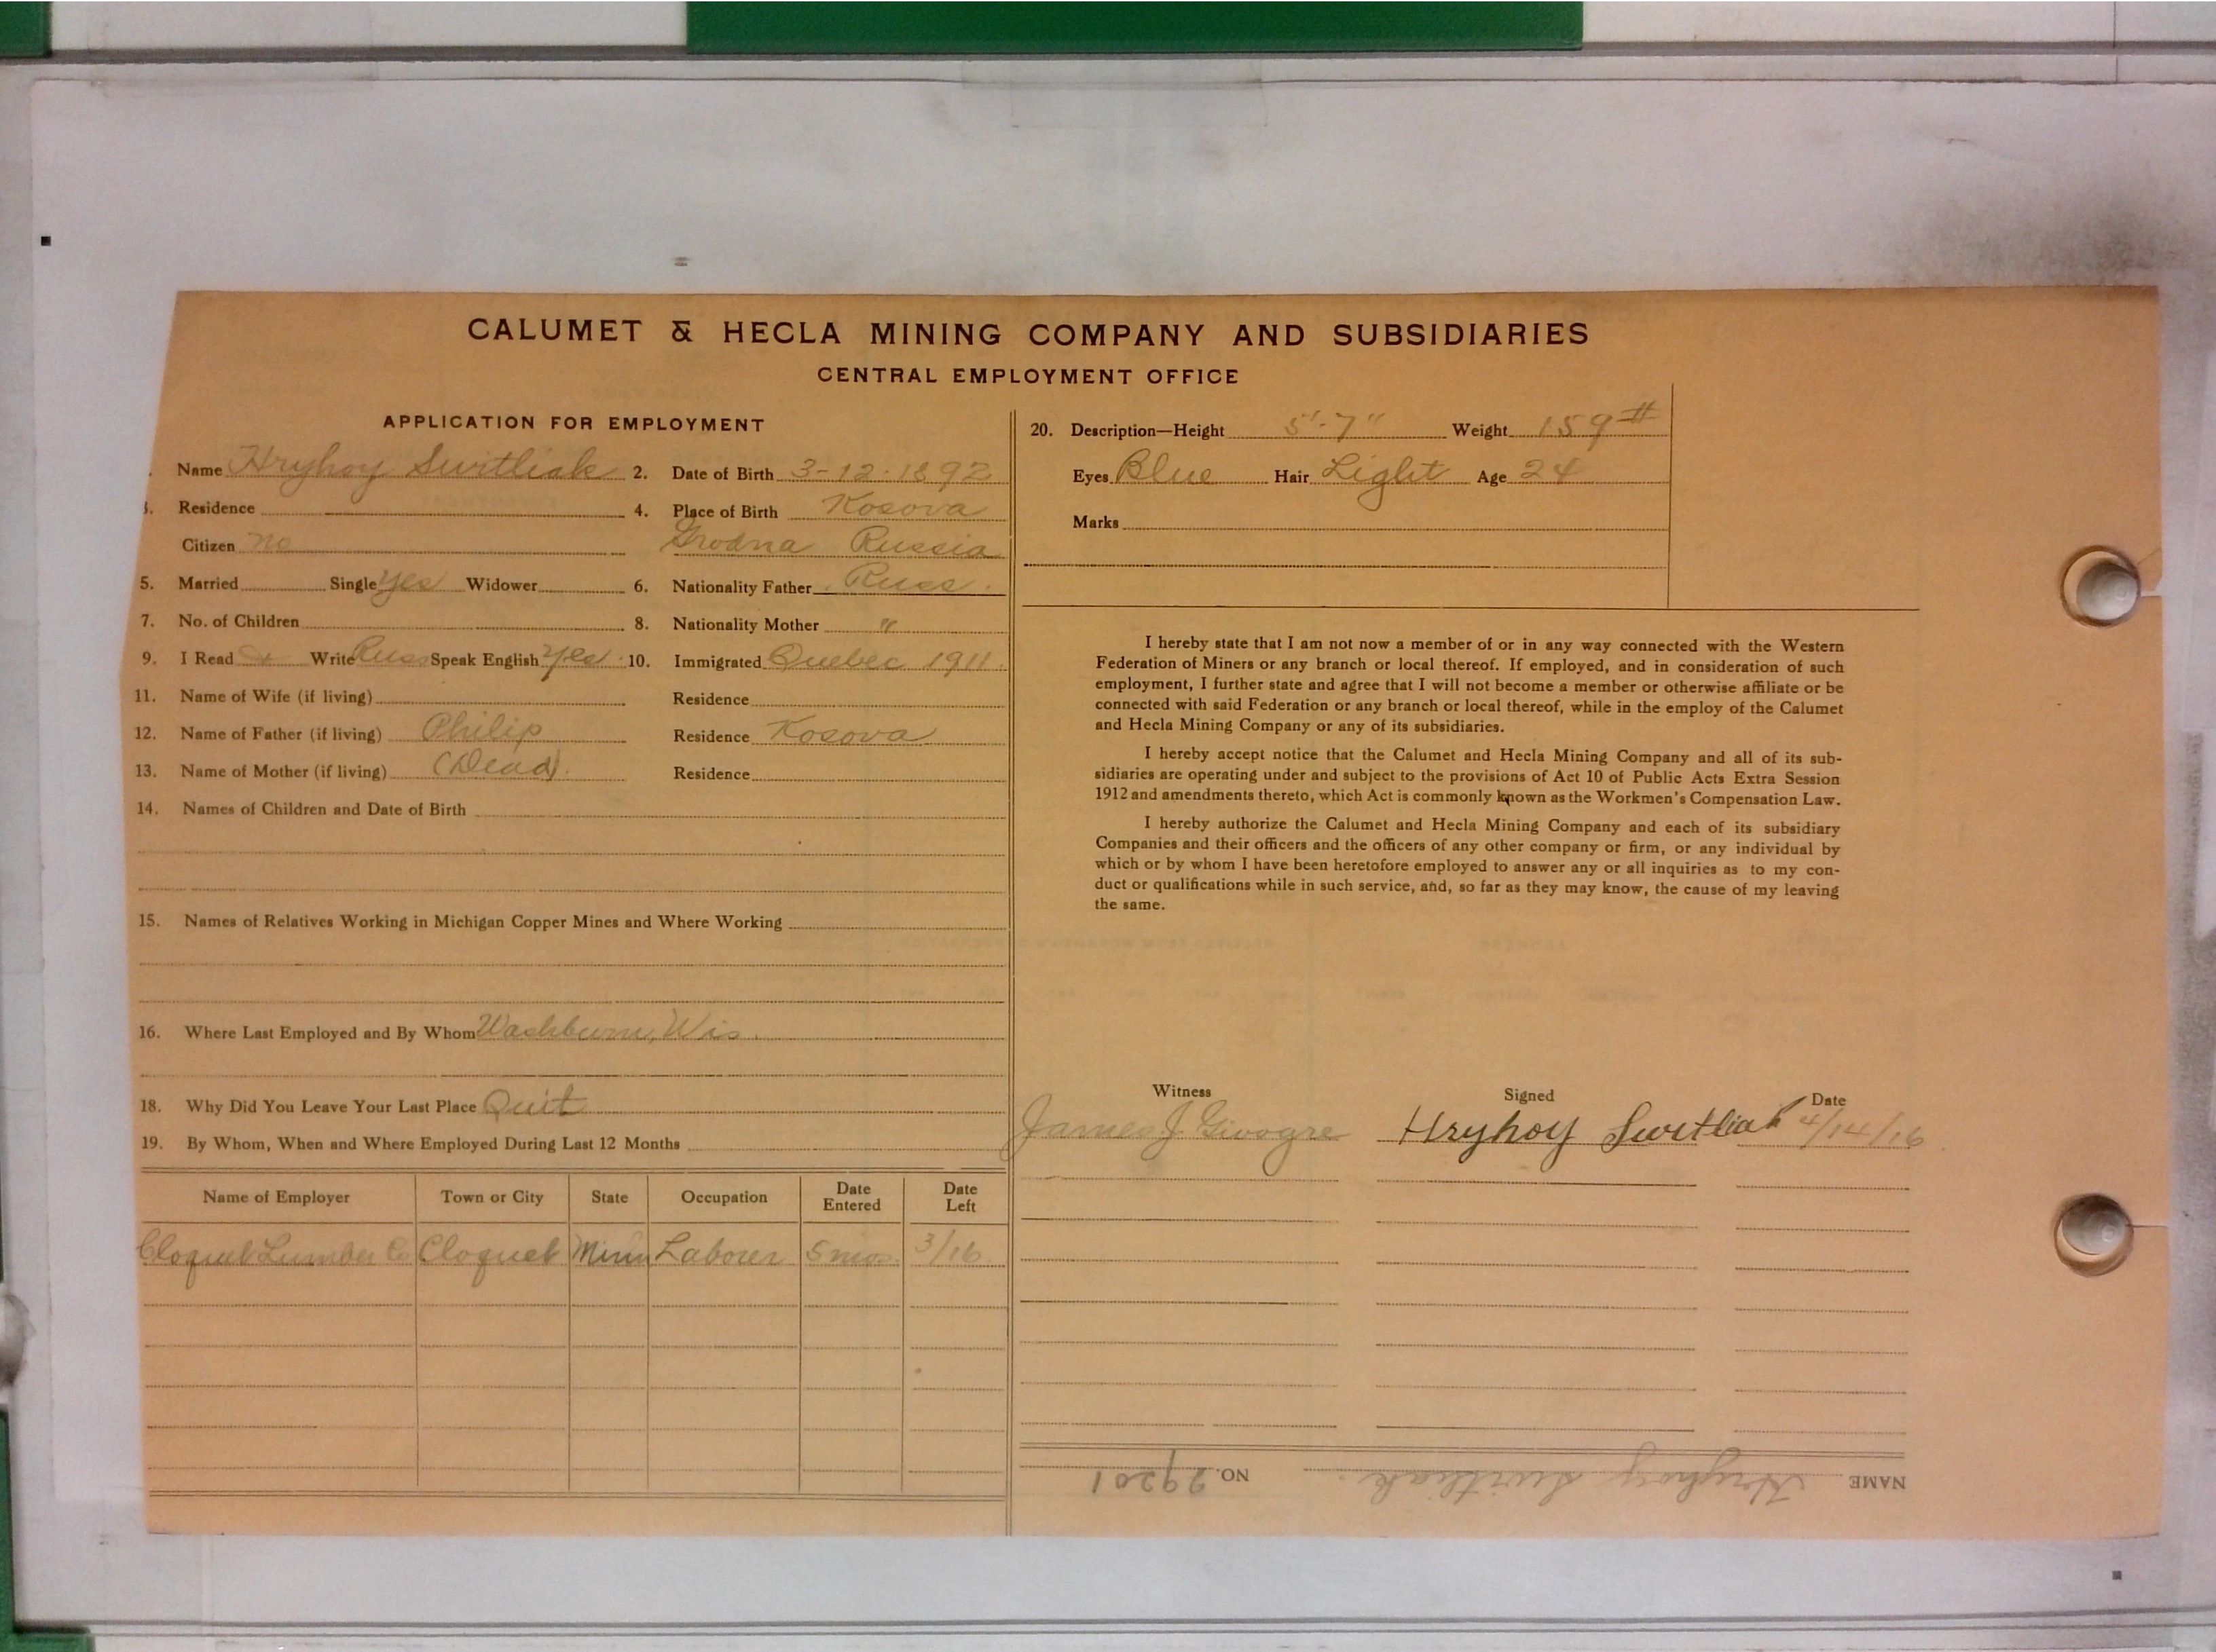 CALUMET & HECLA MINING COMPANY AND SUBSIDIARIES
CENTRAL EMPLOYMENT OFFICE
APPLICATION FOR EMPLOYMENT
Name Hryhoy Switliak 2. Date of Birth 3-12-1892
Residence 4. Place of Birth Kosova
Citizen no Grodna Russia
5. Married Single yes Widower 6. Nationality Father Russ.
7. No. of Children 8. Nationality Mother "
9. I Read & Write Russ Speak English yes 10. Immigrated Quebec 1911.
11. Name of Wife (if living) Residence
12. Name of Father (if living) Philip Residence Kosova
13. Name of Mother (if living) (Dead). Residence
14. Names of Children and Date of Birth
15. Names of Relatives Working in Michigan Copper Mines and Where Working
16. Where Last Employed and By Whom Washburn, Wis.
18. Why Did You Leave Your Last Place Quit
19. By Whom, When and Where Employed During Last 12 Months
Name of Employer Town or City State Occupation Date Entered Date Left
Cloquet Lumber Co Cloquet Minn Laborer 5 mos. 3/16
20. Description—Height 5'-7" Weight 159#
Eyes Blue Hair Light Age 24
Marks
I hereby state that I am not now a member of or in any way connected with the Western
Federation of Miners or any branch or local thereof. If employed, and in consideration of such
employment, I further state and agree that I will not become a member or otherwise affiliate or be
connected with said Federation or any branch or local thereof, while in the employ of the Calumet
and Hecla Mining Company or any of its subsidiaries.
I hereby accept notice that the Calumet and Hecla Mining Company and all of its sub-
sidiaries are operating under and subject to the provisions of Act 10 of Public Acts Extra Session
1912 and amendments thereto, which Act is commonly known as the Workmen's Compensation Law.
I hereby authorize the Calumet and Hecla Mining Company and each of its subsidiary
Companies and their officers and the officers of any other company or firm, or any individual by
which or by whom I have been heretofore employed to answer any or all inquiries as to my con-
duct or qualifications while in such service, and, so far as they may know, the cause of my leaving
the same.
Witness Signed Date
James J. Hryhoy Switliak 4/14/16
NAME Hryhoy Switliak. NO. 29201